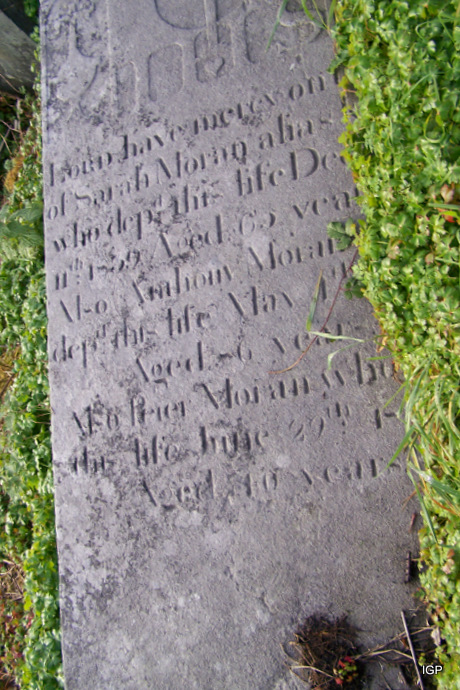 Lord have mercy on
of Sarah Moran alias
who dep.d this life De
11th 1859 Aged 65 yea
Also Anthony Moran
dep.d this life May 12
Aged 6 years
Also Peter Moran who
this life June 29th 18
Aged 40 years
IGP